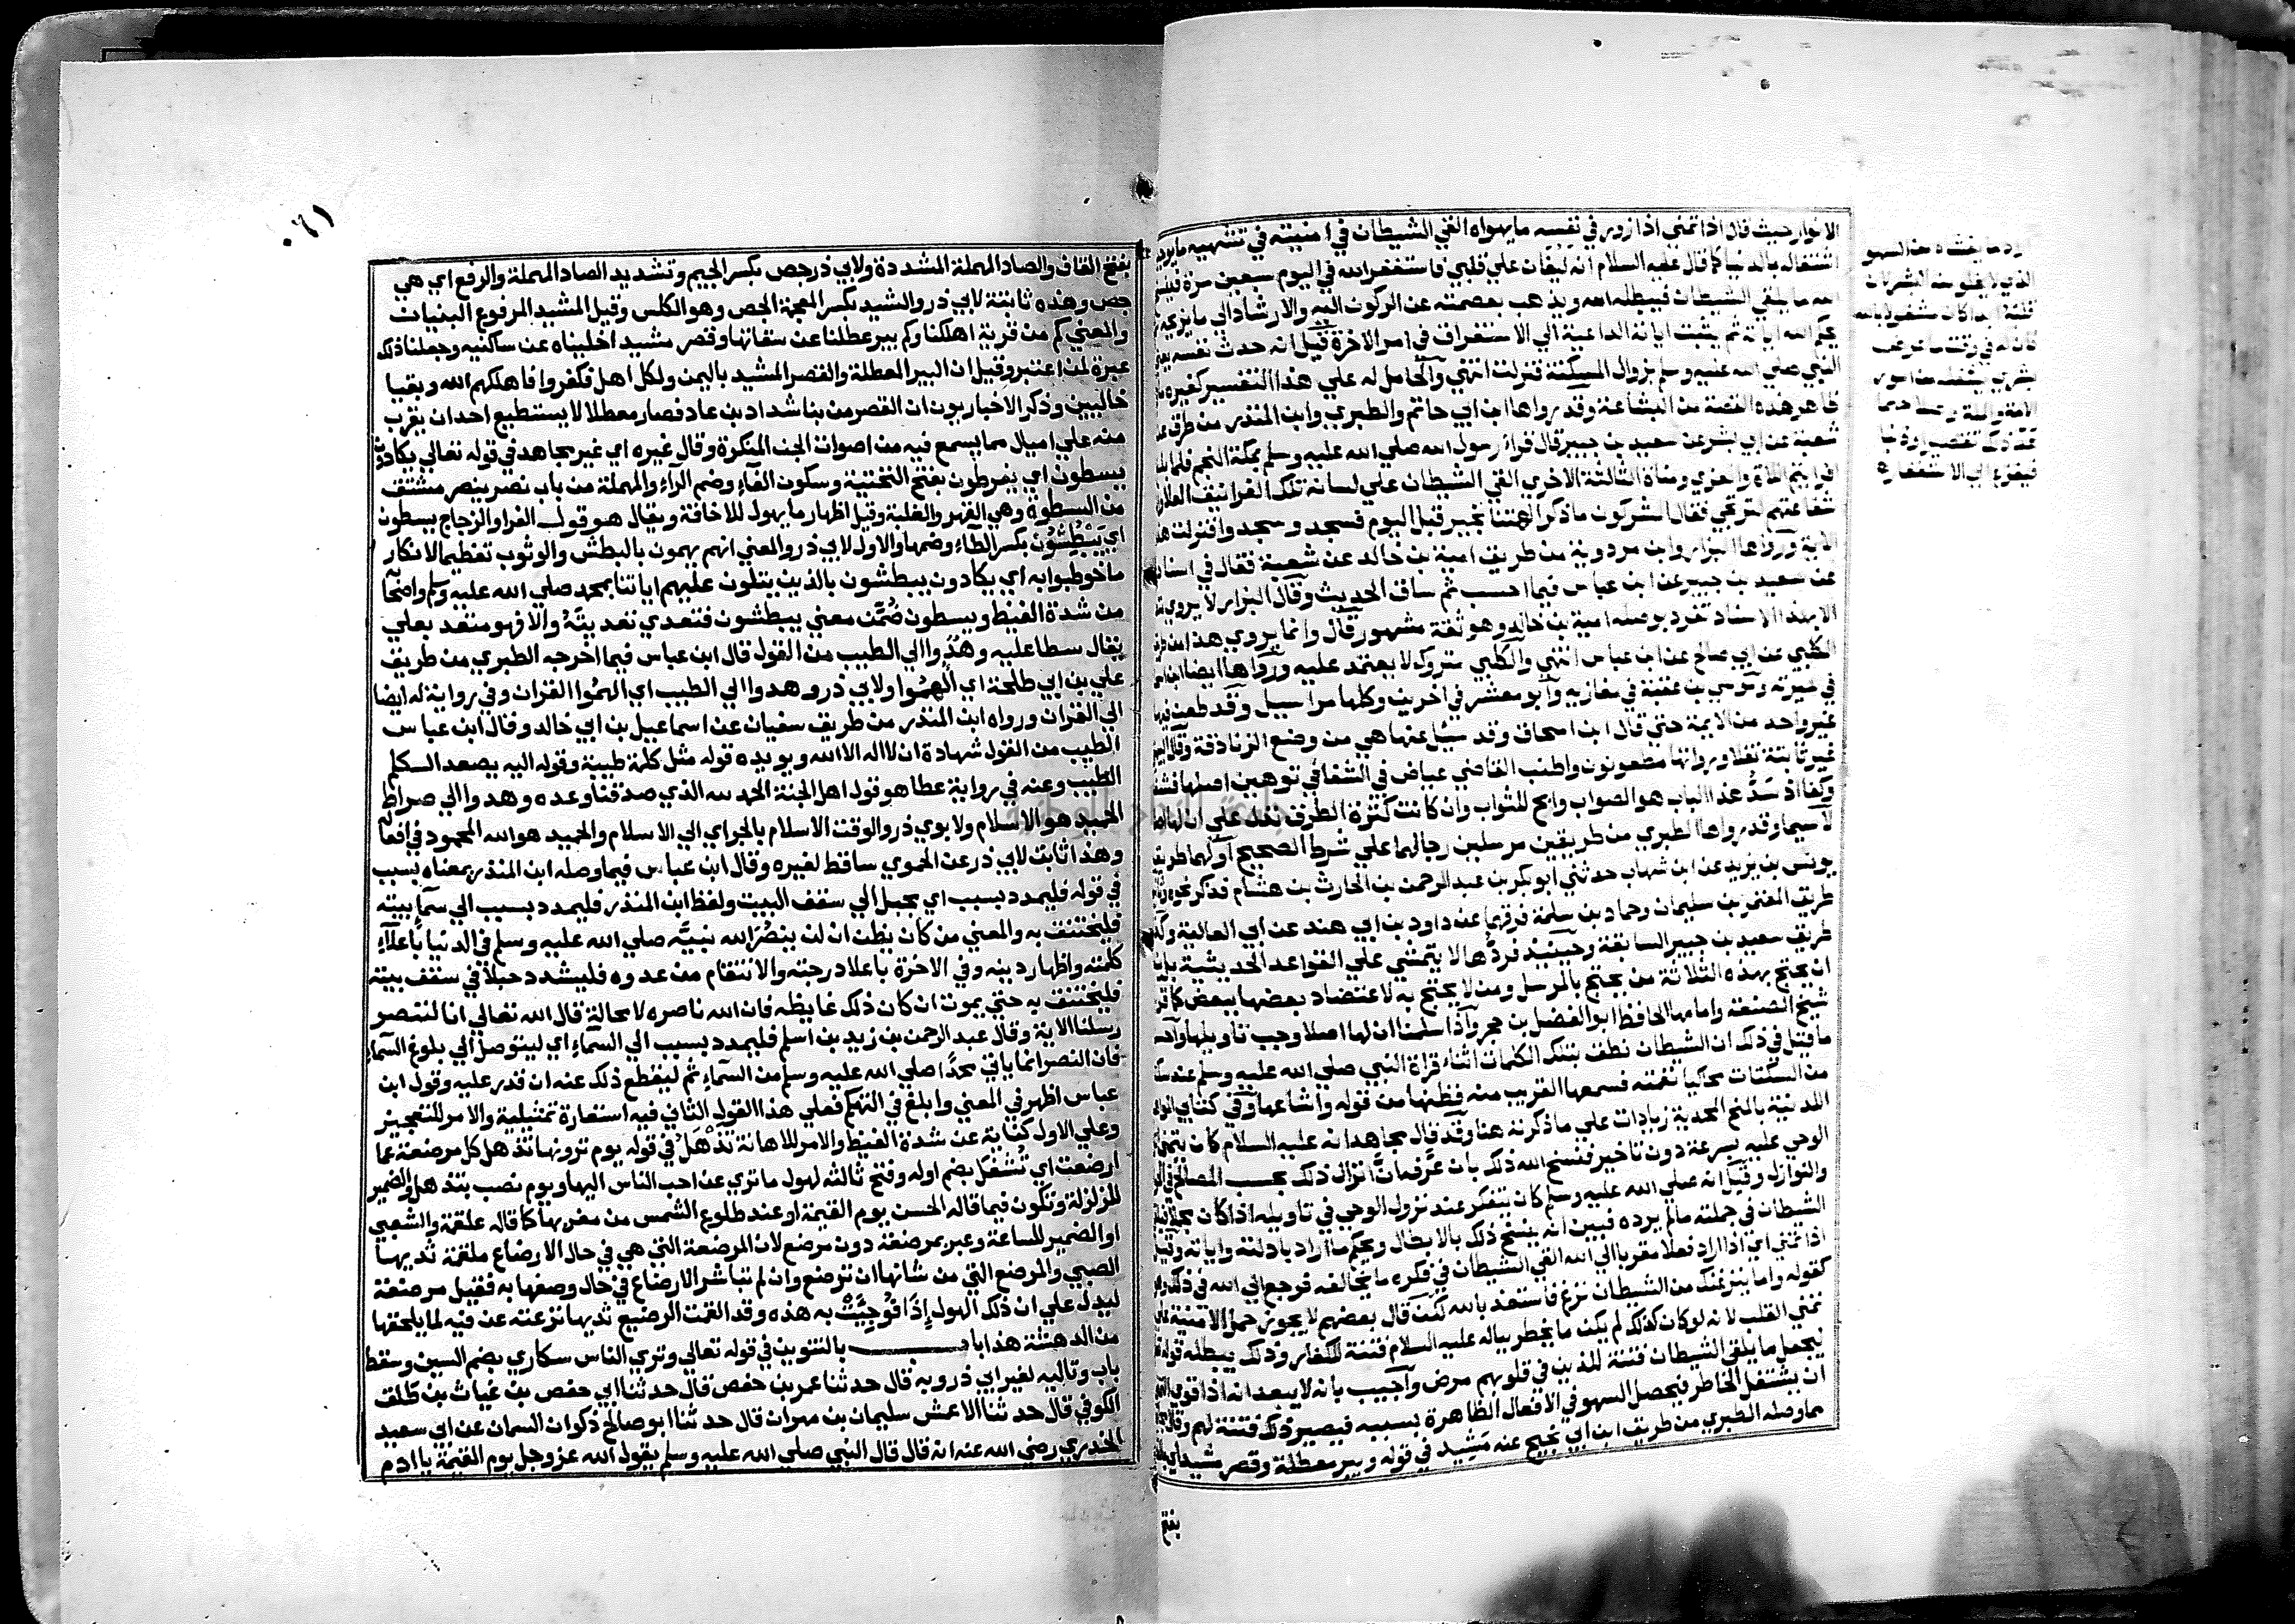 الانوار حيث قال اذا تمنى اذا زور في نفسه ما يهواه القي الشيطان في امنيته في تشهيه ما يوجب
اشتغاله بالدنيا كما قال عليه السلام انه ليغان علي قلبي فاستغفر الله في اليوم سبعين مرة فينسخ
الله ما يلقي الشيطان فيبطله الله ويذهب بعصمته عن الركون اليه والارشاد الي ما يزيحه ثم
يحكم الله اياته ثم يثبت اياته الداعية الي الاستغراق في امر الاخرة قيل انه حدث نفسه
النبي صلي الله عليه وسلم بزوال المسكنة فنزلت انتهي والحامل له علي هذا التفسير كغيره
ظاهر هذه القصة من البشاعة وقد رواها ابن ابي حاتم والطبري وابن المنذر من طرق عن
شعبة عن ابي بشر عن سعيد بن جبير قال قرا رسول الله صلي الله عليه وسلم بمكة النجم فلما بلغ
افرايتم اللاة والعزي ومناة الثالثة الاخري القي الشيطان علي لسانه تلك الغرانيق العلا وان
شفاعتهم لترتجي فقال المشركون ما ذكر الهتنا بخير قبل اليوم فسجد وسجدوا فنزلت هذه
الاية ورواها البزار وابن مردوية من طريق امية بن خالد عن شعبة فقال في اسناده
عن سعيد بن جبير عن ابن عباس فيما احسب ثم ساق الحديث وقال البزار لا يروي متصلا
الا بهذا الاسناد تفرد بوصله امية بن خالد وهو ثقة مشهور قال وانما يروي هذا من طريق
الكلبي عن ابي صالح عن ابن عباس انتهي والكلبي متروك لا يعتمد عليه ورواها ايضا ابن اسحاق
في سيرته وموسي بن عقبة في مغازيه وابو معشر في اخرين وكلها مراسيل وقد طعن فيها
غير واحد من الايمة حتي قال ابن اسحاق وقد سئل عنها هي من وضع الزنادقة وقال البيهقي
غير ثابتة نقلا ورواتها مطعونون واطنب القاضي عياض في الشفا في توهين اصلها فشفي
وكفا اذ سد هذا الباب هو الصواب وارجح للثواب وان كانت كثرة الطرق تدل علي ان لها اصلا
لا سيما وقد رواها الطبري من طريقين مرسلين رجالهما علي شرط الصحيح اولهما طريق
يونس بن يزيد عن ابن شهاب حدثني ابو بكر بن عبد الرحمن بن الحارث بن هشام فذكر نحوه
طريق المعتمر بن سليمان وحماد بن سلمة فرقهما عن داود بن ابي هند عن ابي العالية وكذا
طريق سعيد بن جبير السابقة وحينئذ فردها لا يتمشي علي القواعد الحديثية بل ينبغي
ان يحتج بهذه الثلاثة من يحتج بالمرسل ومن لا يحتج به لاعتضاد بعضها ببعض كما قرره
شيخ الصنعة وامامها الحافظ ابو الفضل بن حجر واذا سلمنا ان لها اصلا وجب تاويلها واحسن
ما قيل في ذلك ان الشيطان نطق بتلك الكلمات اثناء قراة النبي صلي الله عليه وسلم عند سكتة
من السكتات محاكيا نغمته فسمعها القريب منه فظنها من قوله واشاعها وفي كتابي المواهب
اللدنية بالمنح المحمدية زيادات علي ما ذكرته هنا وقد قال مجاهد انه عليه السلام كان يتمني
الوحي عليه بسرعة دون تاخير فنسخ الله ذلك بان عرفه ان انزال ذلك بحسب المصالح في
والنوازل وقيل انه صلي الله عليه وسلم كان يتفكر عند نزول الوحي في تاويله اذا كان مجملا فيلقي
الشيطان في جملته ما لم يرده فبين انه ينسخ ذلك بالابطال ويحكم ما اراد بادلته واياته وقيل
اذا تمني اي اذا اراد فعلا مقربا الي الله القي الشيطان في فكره ما يخالفه فرجع الي الله في ذلك
كقوله واما ينزغنك من الشيطان نزغ فاستعذ بالله لكن قال بعضهم لا يجوز حمل الامنية علي
تمني القلب لانه لو كان كذلك لم يكن ما يخطر بباله عليه السلام فتنة للكفار وذلك يبطله قوله
ليجعل ما يلقي الشيطان فتنة للذين في قلوبهم مرض واجيب بانه لا يبعد انه اذا قوي التمني
ان يشتغل الخاطر فيحصل السهو في الافعال الظاهرة بسببه فيصير ذلك فتنة لهم وقال مجاهد
مما وصله الطبري من طريق ابن ابي نجيح عنه مشيد في قوله وبير معطلة وقصر مشيد اي
بفتح
الذي لا يخلو منه البشر
كان له في وقت ما
فيفزع الي الاستغفار
١٦٠
بفتح القاف والصاد المهملة المشددة ولابي ذر جص بكسر الجيم وتشديد الصاد المهملة والرفع اي هي
جص وهذه ثابتة لابي ذر والشيد بكسر المعجمة الجص وهو الكلس وقيل المشيد المرفوع البنيان
والمعني كم من قرية اهلكنا وكم بير عطلنا عن سقاتها وقصر مشيد اخليناه عن ساكنيه وجعلنا ذلك
عبرة لمن اعتبر وقيل ان البير المعطلة والقصر المشيد باليمن ولكل اهل فكفروا فاهلكهم الله وبقيا
خاليين وذكر الاخباريون ان القصر من بنا شداد بن عاد فصار معطلا لا يستطيع احد ان يقرب
منه علي اميال مما يسمع فيه من اصوات الجن المنكرة وقال غيره اي غير مجاهد في قوله تعالي يكادون
يسطون اي يفرطون بفتح التحتية وسكون الفاء وضم الراء والمهملة من باب نصر ينصر مشتق
من السطوة وهي القهر والغلبة وقيل اظهار ما يهول للاخافة ويقال هو قول الفرا والزجاج يسطون
اي يبطشون بكسر الطاء وضمها والاول لابي ذر والمعني انهم يهمون بالبطش والوثوب تعظيما لانكار
ما خوطبوا به اي يكادون يبطشون بالذين يتلون عليهم اياتنا بمحمد صلي الله عليه وسلم واصحابه
من شدة الغيظ ويسطون ضمن معني يبطشون فتعدي تعديته والا فهو متعد بعلي
يقال سطا عليه وهدوا الي الطيب من القول قال ابن عباس فيما اخرجه الطبري من طريق
علي بن ابي طلحة اي الهموا ولابي ذر وهدوا الي الطيب اي الهموا القران وفي رواية له ايضا
الي القران ورواه ابن المنذر من طريق سفيان عن اسماعيل بن ابي خالد وقال ابن عباس
الطيب من القول شهادة ان لا اله الا الله ويويده قوله مثل كلمة طيبة وقوله اليه يصعد الكلم
الطيب وعنه في رواية عطا هو قول اهل الجنة الحمد لله الذي صدقنا وعده وهدوا الي صراط
الحميد هو الاسلام ولابوي ذر والوقت الاسلام بالجر اي الي الاسلام والحميد هو الله المحمود في افعاله
وهذا ثابت لابي ذر عن الحموي ساقط لغيره وقال ابن عباس فيما وصله ابن المنذر بمعناه بسبب
في قوله فليمدد بسبب اي بحبل الي سقف البيت ولفظ ابن المنذر فليمدد بسبب الي سماء بيته
فليختنق به والمعني من كان يظن ان لن ينصر الله نبيه صلي الله عليه وسلم في الدنيا باعلاء
كلمته واظهار دينه وفي الاخرة باعلا درجته والانتقام ممن عدوه فليشدد حبلا في سقف بيته
فليختنق به حتي يموت ان كان ذلك غايظه فان الله ناصره لا محالة قال الله تعالي انا لننصر
رسلنا الاية وقال عبد الرحمن بن زيد بن اسلم فليمدد بسبب الي السماء اي ليتوصل الي بلوغ السماء
فان النصر انما ياتي محمدا صلي الله عليه وسلم من السماء ثم ليقطع ذلك عنه ان قدر عليه وقول ابن
عباس اظهر في المعني وابلغ في التهكم فعلي هذا القول الثاني فيه استعارة تمثيلية والامر للتعجيز
وعلي الاول كناية عن شدة الغيظ والامر للاهانة تذهل في قوله يوم ترونها تذهل كل مرضعة عما
ارضعت اي تشغل بضم اوله وفتح ثالثه لهول ما تري عن احب الناس اليها ويوم نصب بتذهل والضمير
للزلزلة وتكون فيما قاله الحسن يوم القيمة او عند طلوع الشمس من مغربها كما قاله علقمة والشعبي
او الضمير للساعة وعبر بمرضعة دون مرضع لان المرضعة التي هي في حال الارضاع ملقمة ثديها
الصبي والمرضع التي من شانها ان ترضع وان لم تباشر الارضاع في حال وصفها به فقيل مرضعة
ليدل علي ان ذلك الهول اذا فوجيت به هذه وقد القمت الرضيع ثديها نزعته عن فيه لما يلحقها
من الدهشة هذا باب بالتنوين في قوله تعالي وتري الناس سكاري بضم السين وسقط
باب وتاليه لغير ابي ذر وبه قال حدثنا عمر بن حفص قال حدثنا ابي حفص بن غياث بن طلق
الكوفي قال حدثنا الاعمش سليمان بن مهران قال حدثنا ابو صالح ذكوان السمان عن ابي سعيد
الخدري رضي الله عنه انه قال قال النبي صلي الله عليه وسلم يقول الله عز وجل يوم القيمة يا ادم